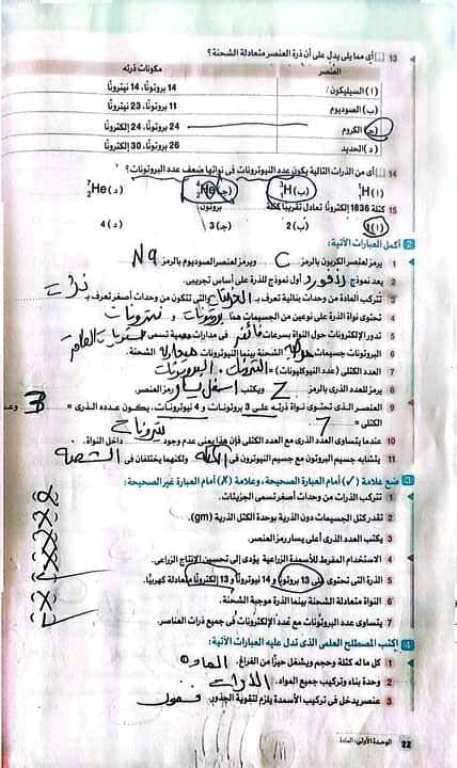 13 أى مما يلى يدل على أن ذرة العنصر متعادلة الشحنة ؟
العنصر مكونات ذرته
(أ) السيليكون 14 بروتونًا، 14 نيترونًا
(ب) الصوديوم 11 بروتونًا، 23 نيترونًا
(ج) الكروم 24 بروتونًا، 24 إلكترونًا
(د) الحديد 26 بروتونًا، 30 إلكترونًا
14 أى من الذرات التالية يكون عدد النيوترونات فى نواتها ضعف عدد البروتونات ؟
(أ) H (ب) H (ج) He (د) He
15 كتلة 1836 إلكترونًا تعادل تقريبًا كتلة بروتون
(أ) 1 (ب) 2 (ج) 3 (د) 4
2 أكمل العبارات الآتية :
1 يرمز لعنصر الكربون بالرمز C ويرمز لعنصر الصوديوم بالرمز Na
2 يعد نموذج رذفورد أول نموذج للذرة على أساس تجريبى.
3 تتركب المادة من وحدات بنائية تعرف بـ الجزيئات والتى تتكون من وحدات أصغر تعرف بـ ذرات
4 تحتوى نواة الذرة على نوعين من الجسيمات هما بروتونات و نيترونات
5 تدور الإلكترونات حول النواة بسرعات فائقة فى مدارات وهمية تسمى مستويات الطاقة
6 البروتونات جسيمات موجبة الشحنة بينما النيوترونات متعادلة الشحنة.
7 العدد الكتلى (عدد النيوكليونات) = النيترونات + البروتونات
8 يرمز للعدد الذرى بالرمز Z ويكتب أسفل يسار رمز العنصر.
9 العنصر الذى تحتوى نواة ذرته على 3 بروتونات و 4 نيوترونات، يكون عدده الذرى = 3 وعدده
الكتلى = 7
10 عندما يتساوى العدد الذرى مع العدد الكتلى فإن هذا يعنى عدم وجود نيترونات داخل النواة.
11 يتشابه جسيم البروتون مع جسيم النيوترون فى الكتلة ولكنهما يختلفان فى الشحنة
3 ضع علامة (✓) أمام العبارة الصحيحة، وعلامة (✗) أمام العبارة غير الصحيحة :
1 تتركب الذرات من وحدات أصغر تسمى الجزيئات.
2 تقدر كتل الجسيمات دون الذرية بوحدة الكتل الذرية (gm).
3 يكتب العدد الذرى أعلى يسار رمز العنصر.
4 الاستخدام المفرط للأسمدة الزراعية يؤدى إلى تحسين الإنتاج الزراعى.
5 الذرة التى تحتوى على 13 بروتونًا و 14 نيوترونًا و 13 إلكترونًا متعادلة كهربيًا.
6 النواة متعادلة الشحنة بينما الذرة موجبة الشحنة.
7 يتساوى عدد البروتونات مع عدد الإلكترونات فى جميع ذرات العناصر.
4 اكتب المصطلح العلمى الذى تدل عليه العبارات الآتية :
1 كل ما له كتلة وحجم ويشغل حيزًا من الفراغ. المادة
2 وحدة بناء وتركيب جميع المواد. الذرات
3 عنصر يدخل فى تركيب الأسمدة يلزم لتقوية الجذور.
22 الوحدة الأولى: المادة